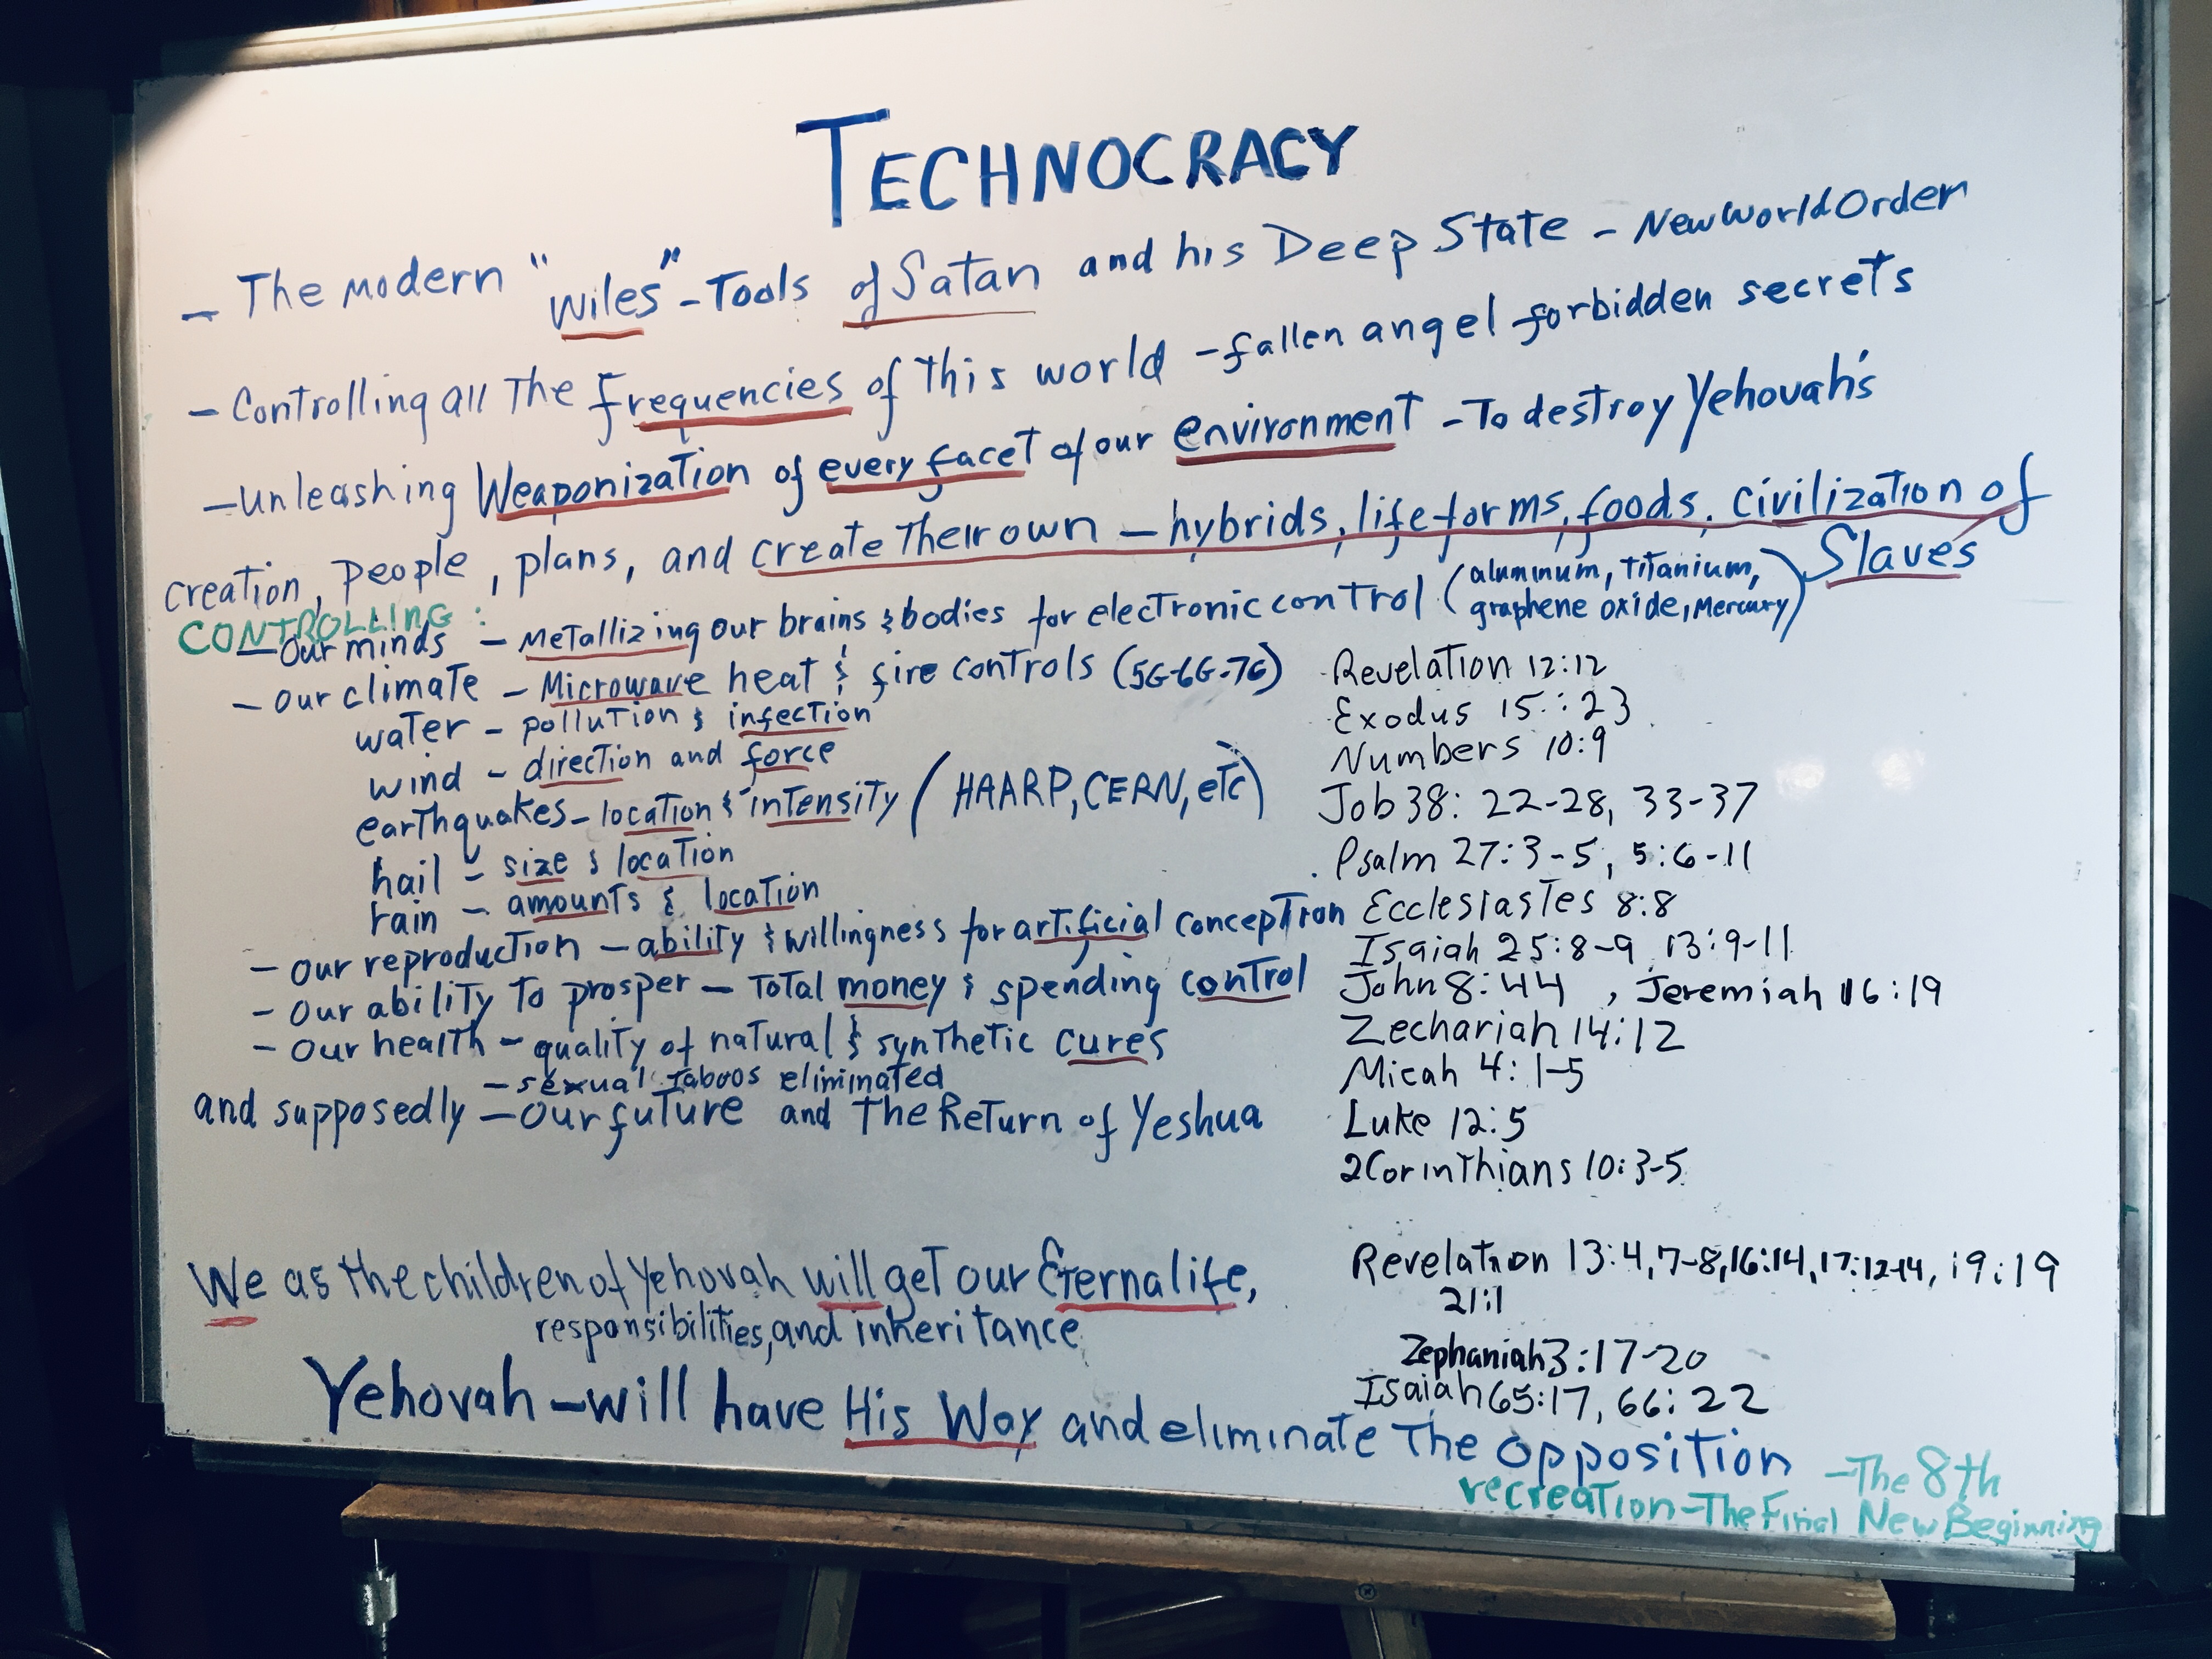 TECHNOCRACY
- The modern "wiles" - Tools of Satan and his Deep State - New World Order
- Controlling all The frequencies of This world - fallen angel forbidden secrets
- Unleashing Weaponization of every facet of our environment - To destroy Yehovah's
creation, people, plans, and create Their own - hybrids, lifeforms, foods, civilization of
Slaves
CONTROLLING:
- Our minds - Metallizing our brains & bodies for electronic control (aluminum, Titanium,
graphene oxide, Mercury)
- our climate - Microwave heat & fire controls (5G-6G-7G)
water - pollution & infection
wind - direction and force
earthquakes - location & intensity (HAARP, CERN, etc)
hail - size & location
rain - amounts & location
- Our reproduction - ability & willingness for artificial conception
- Our ability To prosper - Total money & spending control
- Our health - quality of natural & synthetic cures
- sexual Taboos eliminated
and supposedly - Our future and The Return of Yeshua
Revelation 12:12
Exodus 15:23
Numbers 10:9
Job 38: 22-28, 33-37
Psalm 27:3-5, 5:6-11
Ecclesiastes 8:8
Isaiah 25:8-9, 13:9-11
John 8:44, Jeremiah 16:19
Zechariah 14:12
Micah 4:1-5
Luke 12:5
2 Corinthians 10:3-5
Revelation 13:4, 7-8, 16:14, 17:12-14, 19:19
21:1
Zephaniah 3:17-20
Isaiah 65:17, 66:22
We as the children of Yehovah will get our Eternalife,
responsibilities, and inheritance
Yehovah - will have His Way and eliminate The opposition
- The 8th
recreation - The Final New Beginning